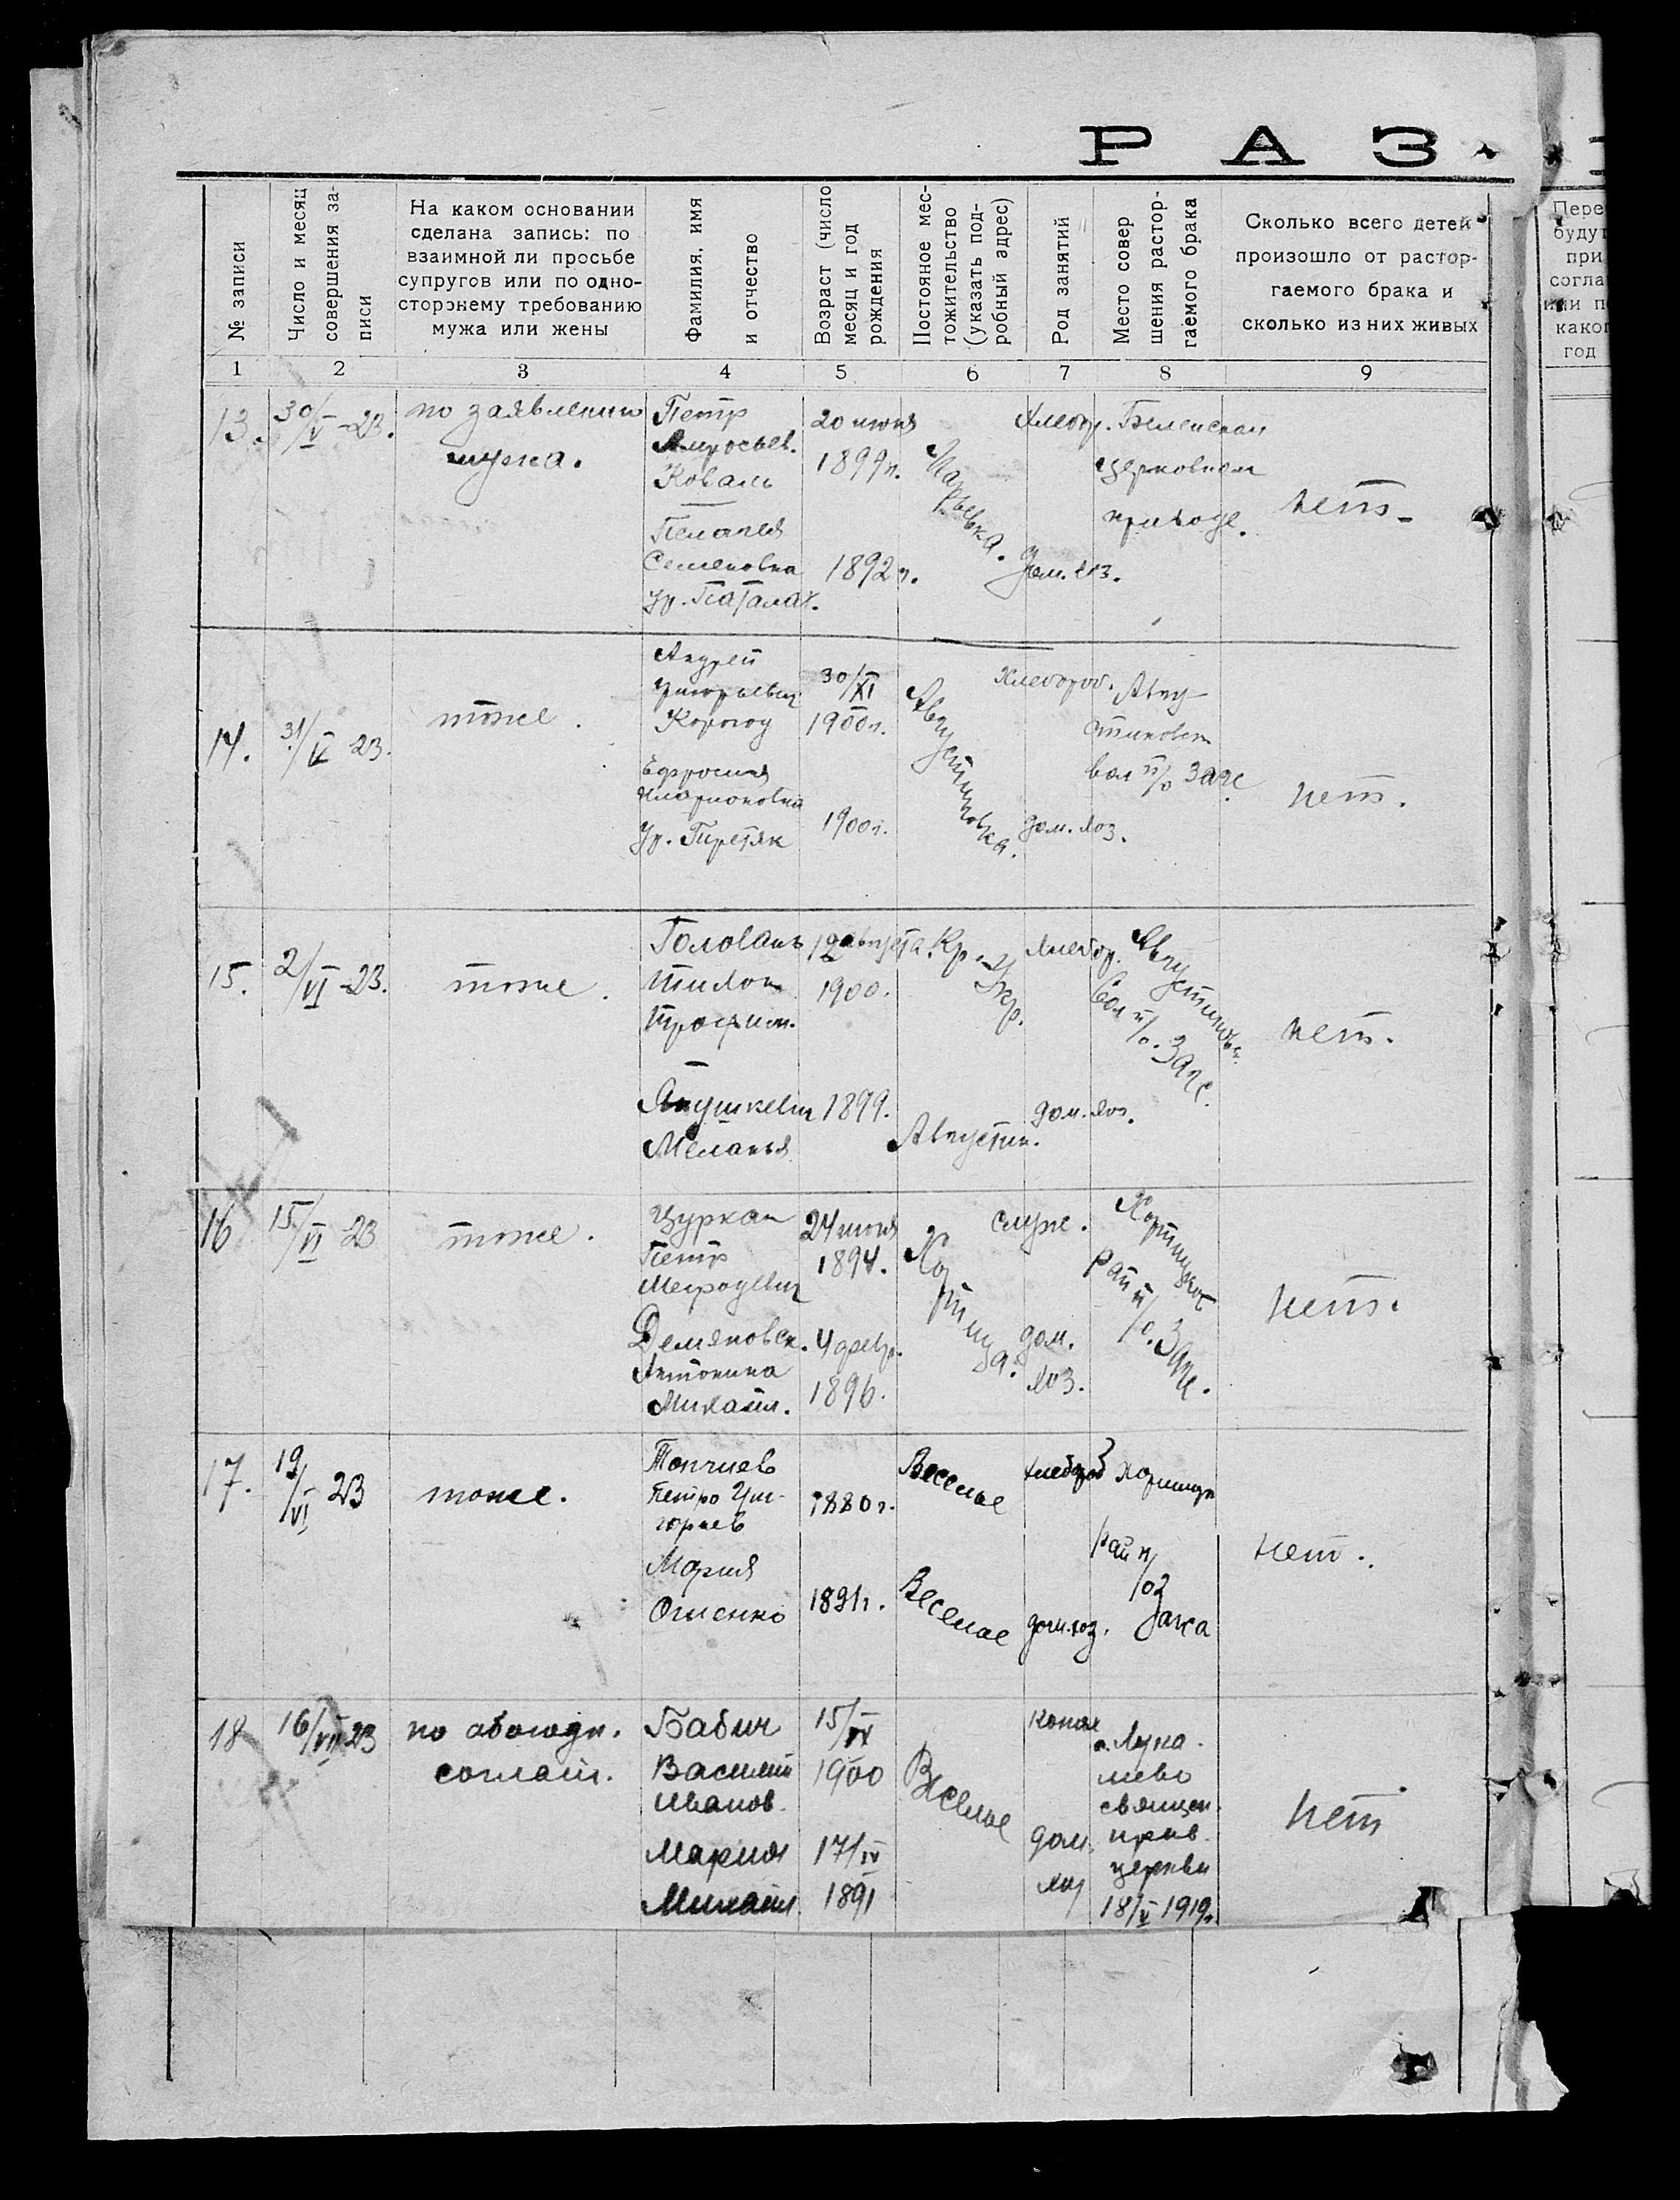 РАЗ
№ записи
Число и месяц
совершения за-
писи
На каком основании
сделана запись: по
взаимной ли просьбе
супругов или по одно-
сторэнему требованию
мужа или жены
Фамилия, имя
и отчество
Возраст (число
месяц и год
рождения
Постояное мес-
тожительство
(указать под-
робный адрес)
Род занятий
Место совер
шения растор-
гаемого брака
Сколько всего детей
произошло от растор-
гаемого брака и
сколько из них живых
1 2 3 4 5 6 7 8 9
13. 30/V-23.
по заявлению
мужа.
Петр
Амросьев.
Коваль
Пелагея
Семеновна
20 июня
1899г.
1892г.
Хлебор.
Дом. хоз.
Беленском
церковном
приходе.
нет-
14. 31/V 23.
тоже.
Андрей
Григорьевич
Коро
Ефросиния
Илларионовна
Ур. Третяк
30/XI
1900г.
1900г.
Августиновка.
Хлебороб.
дом. хоз.
Авгу-
стиновск
вол п/о Загс
нет.
15. 2/VI-23.
тоже.
Головань
Тихон
Трофим.
Янушкевич
Меланья
августа
1900.
1899.
Кр.-Укр.
Августин.
Хлебор.
дом. хоз.
Августиновск.
Вол п/о. Загс.
нет.
16 15/VI 23
тоже.
Цуркан
Петр
Мефодевич
Демяновск.
Антонина
Михайл.
24 июня
1894.
4 февр.
1896.
Хортица.
служ.
дом.
хоз.
Хортицкое
Рай п/о. Загс.
нет.
17. 19/VI 23
тоже.
Топчиев
Петро Гри-
горьев
Мария
1880г.
1891г.
Веселое
Веселое
Хлебороб
дом. хоз.
Хортицк
рай п/оз
Загса
нет.
18 16/VII 23
по обоюдн.
соглаш.
Бабич
Василий
Иванов.
Мария
Михайл.
15/IX
1900
17/IV
1891
Веселое
дом.
хоз
с. Лука-
шево
священ.
церкви
18/V 1919г.
нет
Пере
будут
при
согла
или п
како
год